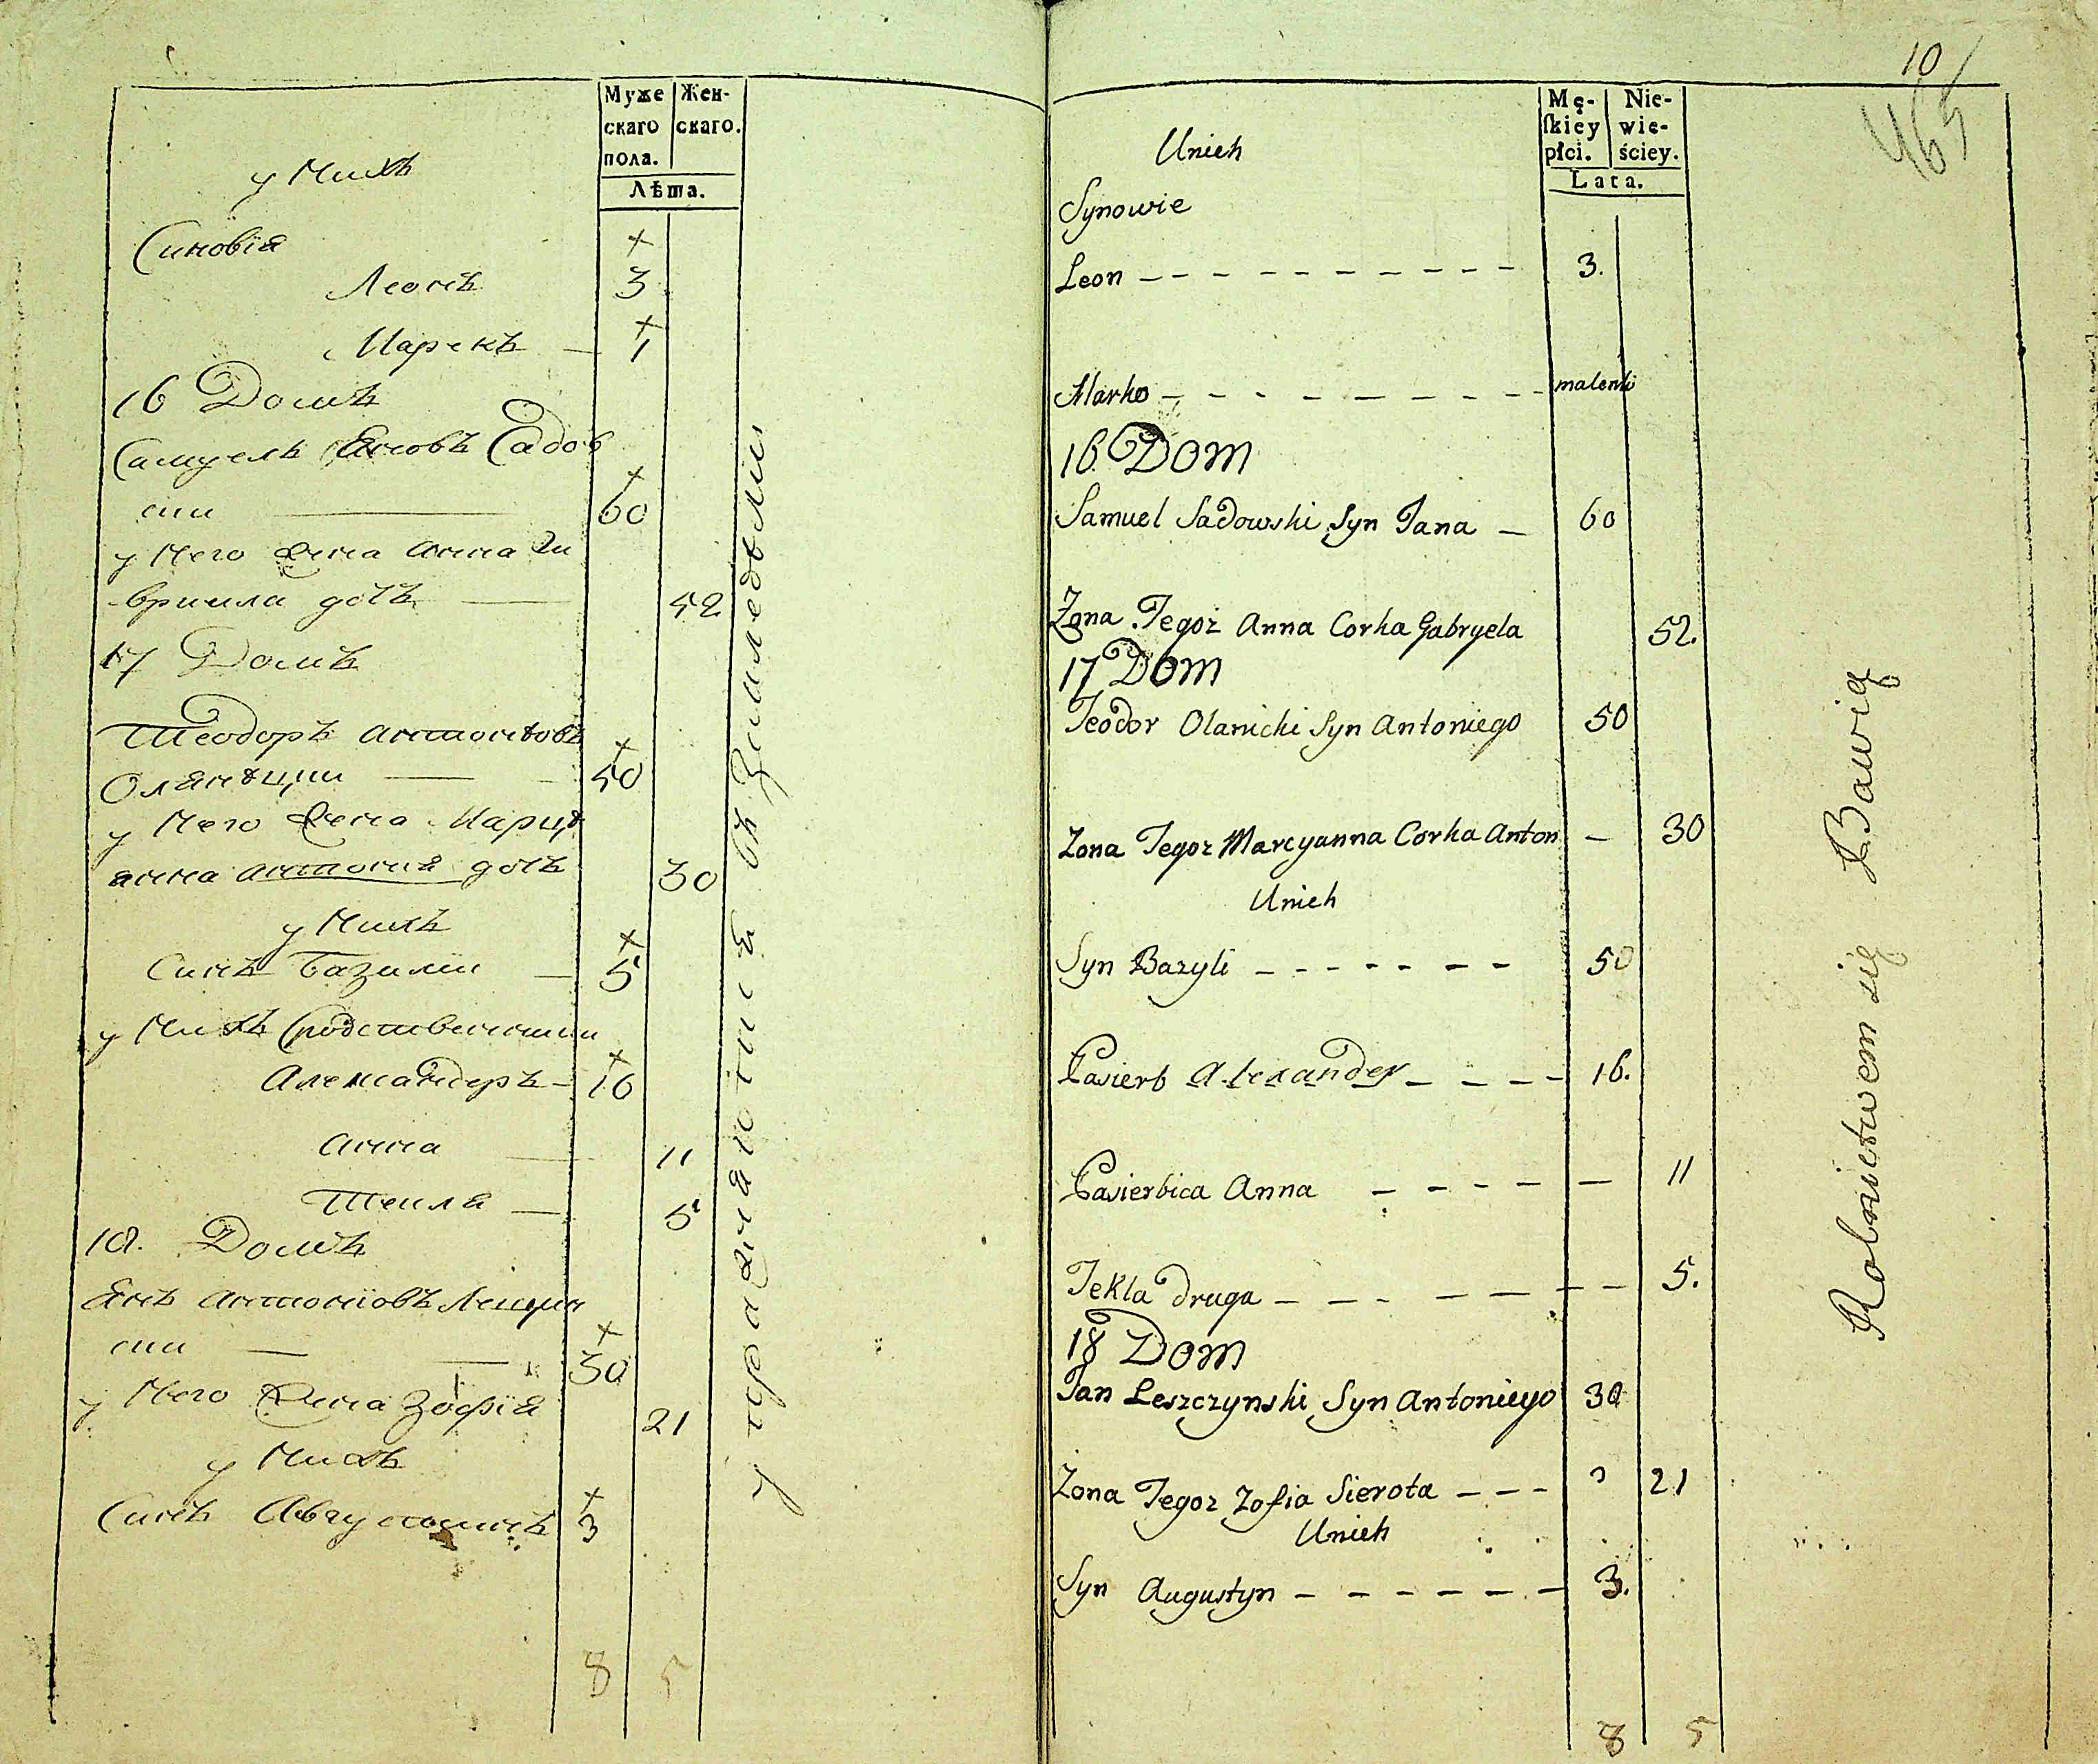 Муже
скаго
пола.
Жен-
скаго.
Лѣта.
у Нихъ
Синовія
Леонъ 3
Марекъ — 1
16 Домъ
Самуель Яновъ Садов
ски — 60
у Него Жена Анна Га
вриила дочъ — 52
17 Домъ
Теодоръ Антоновъ
— 50
у Него Жена Марця
анна Антонія дочъ 30
у Нихъ
Синъ Базили — 5
у Нихъ
Александеръ — 16
Анна — 11
Текля — 5
18. Домъ
Янъ Антоніовъ Лещин
ски — 30
у Него Жена Зофія 21
у Нихъ
Синъ Августинъ 3
8 5
упражняются въ Земледѣлии
10
465
Mę-
ſkiey
płci.
Nie-
wie-
ściey.
Lata.
Unich
Synowie
Leon — — — — — — — — — 3.
Marko — — — — — — — — — malenki
16. Dom
Samuel Sadowski Syn Jana — 60
Zona Tegoż Anna Corka Gabryela 52.
17 Dom
Teodor Olanicki Syn Antoniego 50
Zona Tegoz Marcyanna Corka Anton — 30
Unich
Syn Bazyli — — — — — — — 50
Pasierb Alexander — — — — 16.
Pasierbica Anna — — — — — 11
Tekla druga — — — — — — — — 5.
18 Dom
Jan Leszczynski Syn Antoniego 30
Zona Tegoz Zofia Sierota — — — 21
Unich
Syn Augustyn — — — — — — 3.
8 5
Rolnictwem się Bawią